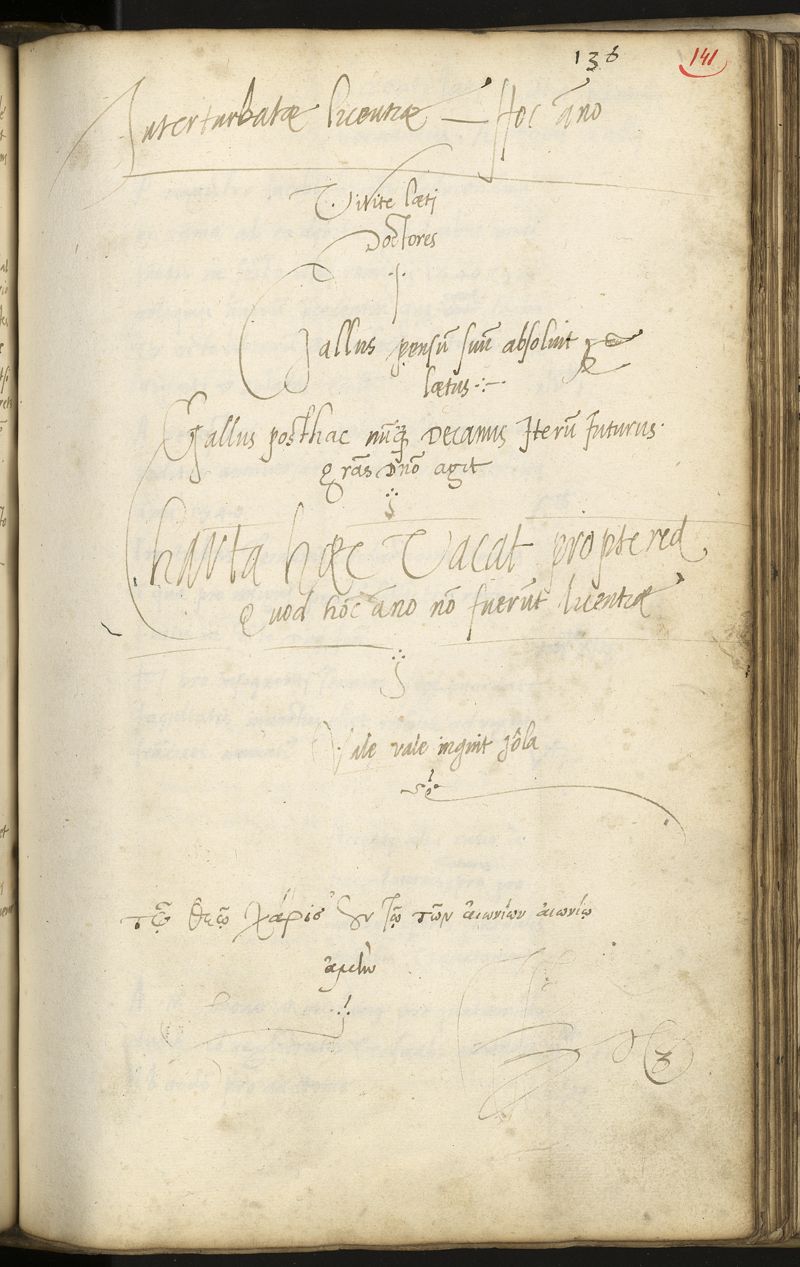 138 141
Interturbatæ licentiæ — Hoc año
Vivite læti
Doctores
Gallus pensũ suũ absolvit
lætus
Gallus posthac nũq̃ Decanus Iterũ futurus
grãs dño agit
Charta hæc Vacat propterea
Quod hoc año nõ fuerũt licentiæ
Vale vale inquit Iôla
τῷ θεῷ χάρις ἐν τῷ τῶν αἰωνίων αἰωνίῳ
ἀμὴν